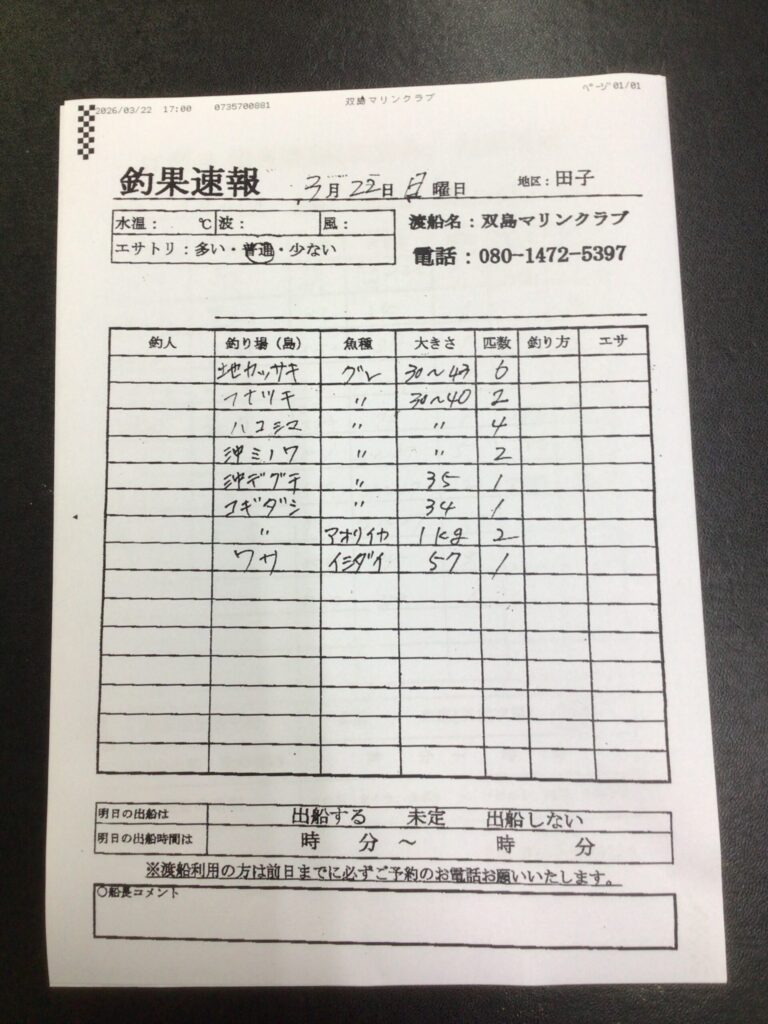 2026/03/22 17:00 0735700881 双島マリンクラブ ページ 01/01
釣果速報 3月22日 日曜日 地区：田子
水温： ℃ 波： 風：
渡船名：双島マリンクラブ
エサトリ：多い・普通・少ない
電話：080-1472-5397
釣人 釣り場（島） 魚種 大きさ 匹数 釣り方 エサ
地カッサキ グレ 30～43 6
フナツキ 〃 30～40 2
ハコシマ 〃 〃 4
沖ミノワ 〃 〃 2
沖デグチ 〃 35 1
コギダシ 〃 34 1
〃 アオリイカ 1kg 2
ワサ イシダイ 57 1
明日の出船は 出船する 未定 出船しない
明日の出船時間は 時 分 ～ 時 分
※渡船利用の方は前日までに必ずご予約のお電話お願いいたします。
○船長コメント